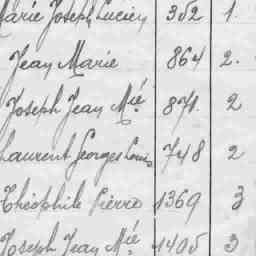 Marie Joseph Lucien 352 1.
Jean Marie 864 2.
Joseph Jean Mié 871. 2
Laurent Georges Louis 748 2
Théophile Pierre 1369 3
Joseph Jean Mié 1405 3